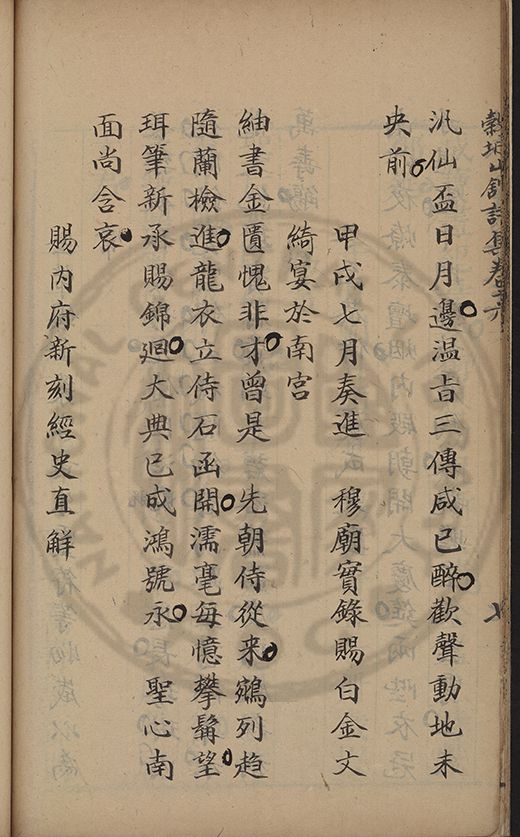 穀城山館詩集卷之六
七
汎仙盃日月邊温旨三傳咸已醉歡聲動地未
央前
甲戌七月奏進　穆廟實錄賜白金文
綺宴於南宮
紬書金匱愧非才曾是　先朝侍從来鵷列趨
隨蘭檢進龍衣立侍石函開濡毫每憶攀髯望
珥筆新承賜錦廻大典已成鴻號永　聖心南
面尚含哀
賜內府新刻經史直解